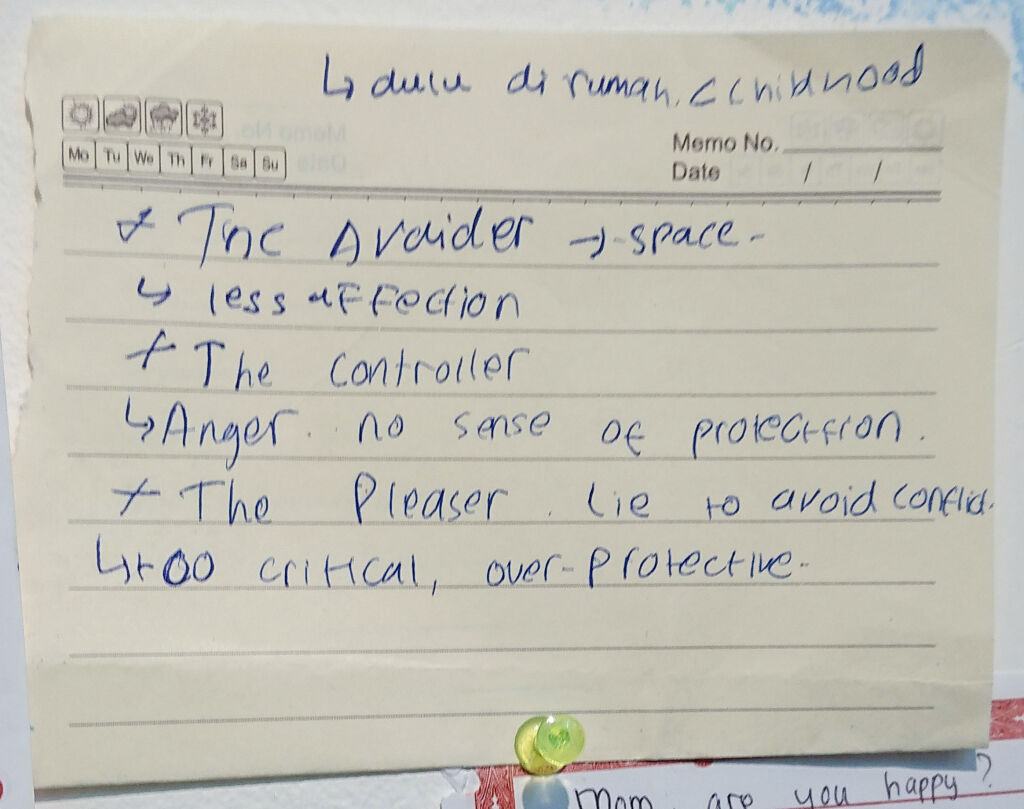 ↳ dulu di rumah. (childhood
Memo No.
Date / /
Mo Tu We Th Fr Sa Su
+ The Avoider → space -
↳ less affection
+ The controller
↳ Anger. no sense of protection.
+ The Pleaser. lie to avoid conflict.
↳ too critical, over-protective.
Mom are you happy?